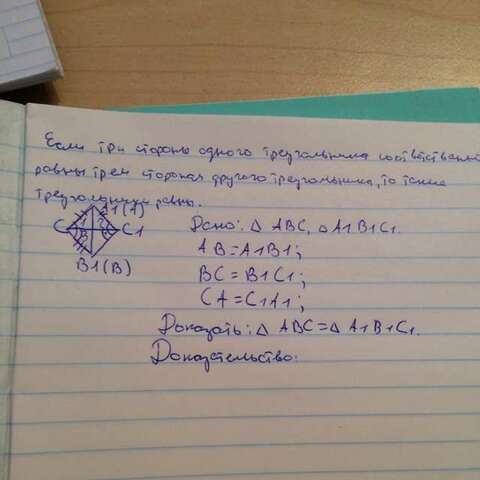 Если три стороны одного треугольника соответственно
равны трем сторонам другого треугольника, то такие
треугольники равны.
A1(A)
C C1
B1(B)
Дано: △ ABC, △ A1B1C1.
AB=A1B1;
BC=B1C1;
CA=C1A1;
Доказать: △ ABC=△ A1B1C1.
Доказательство: